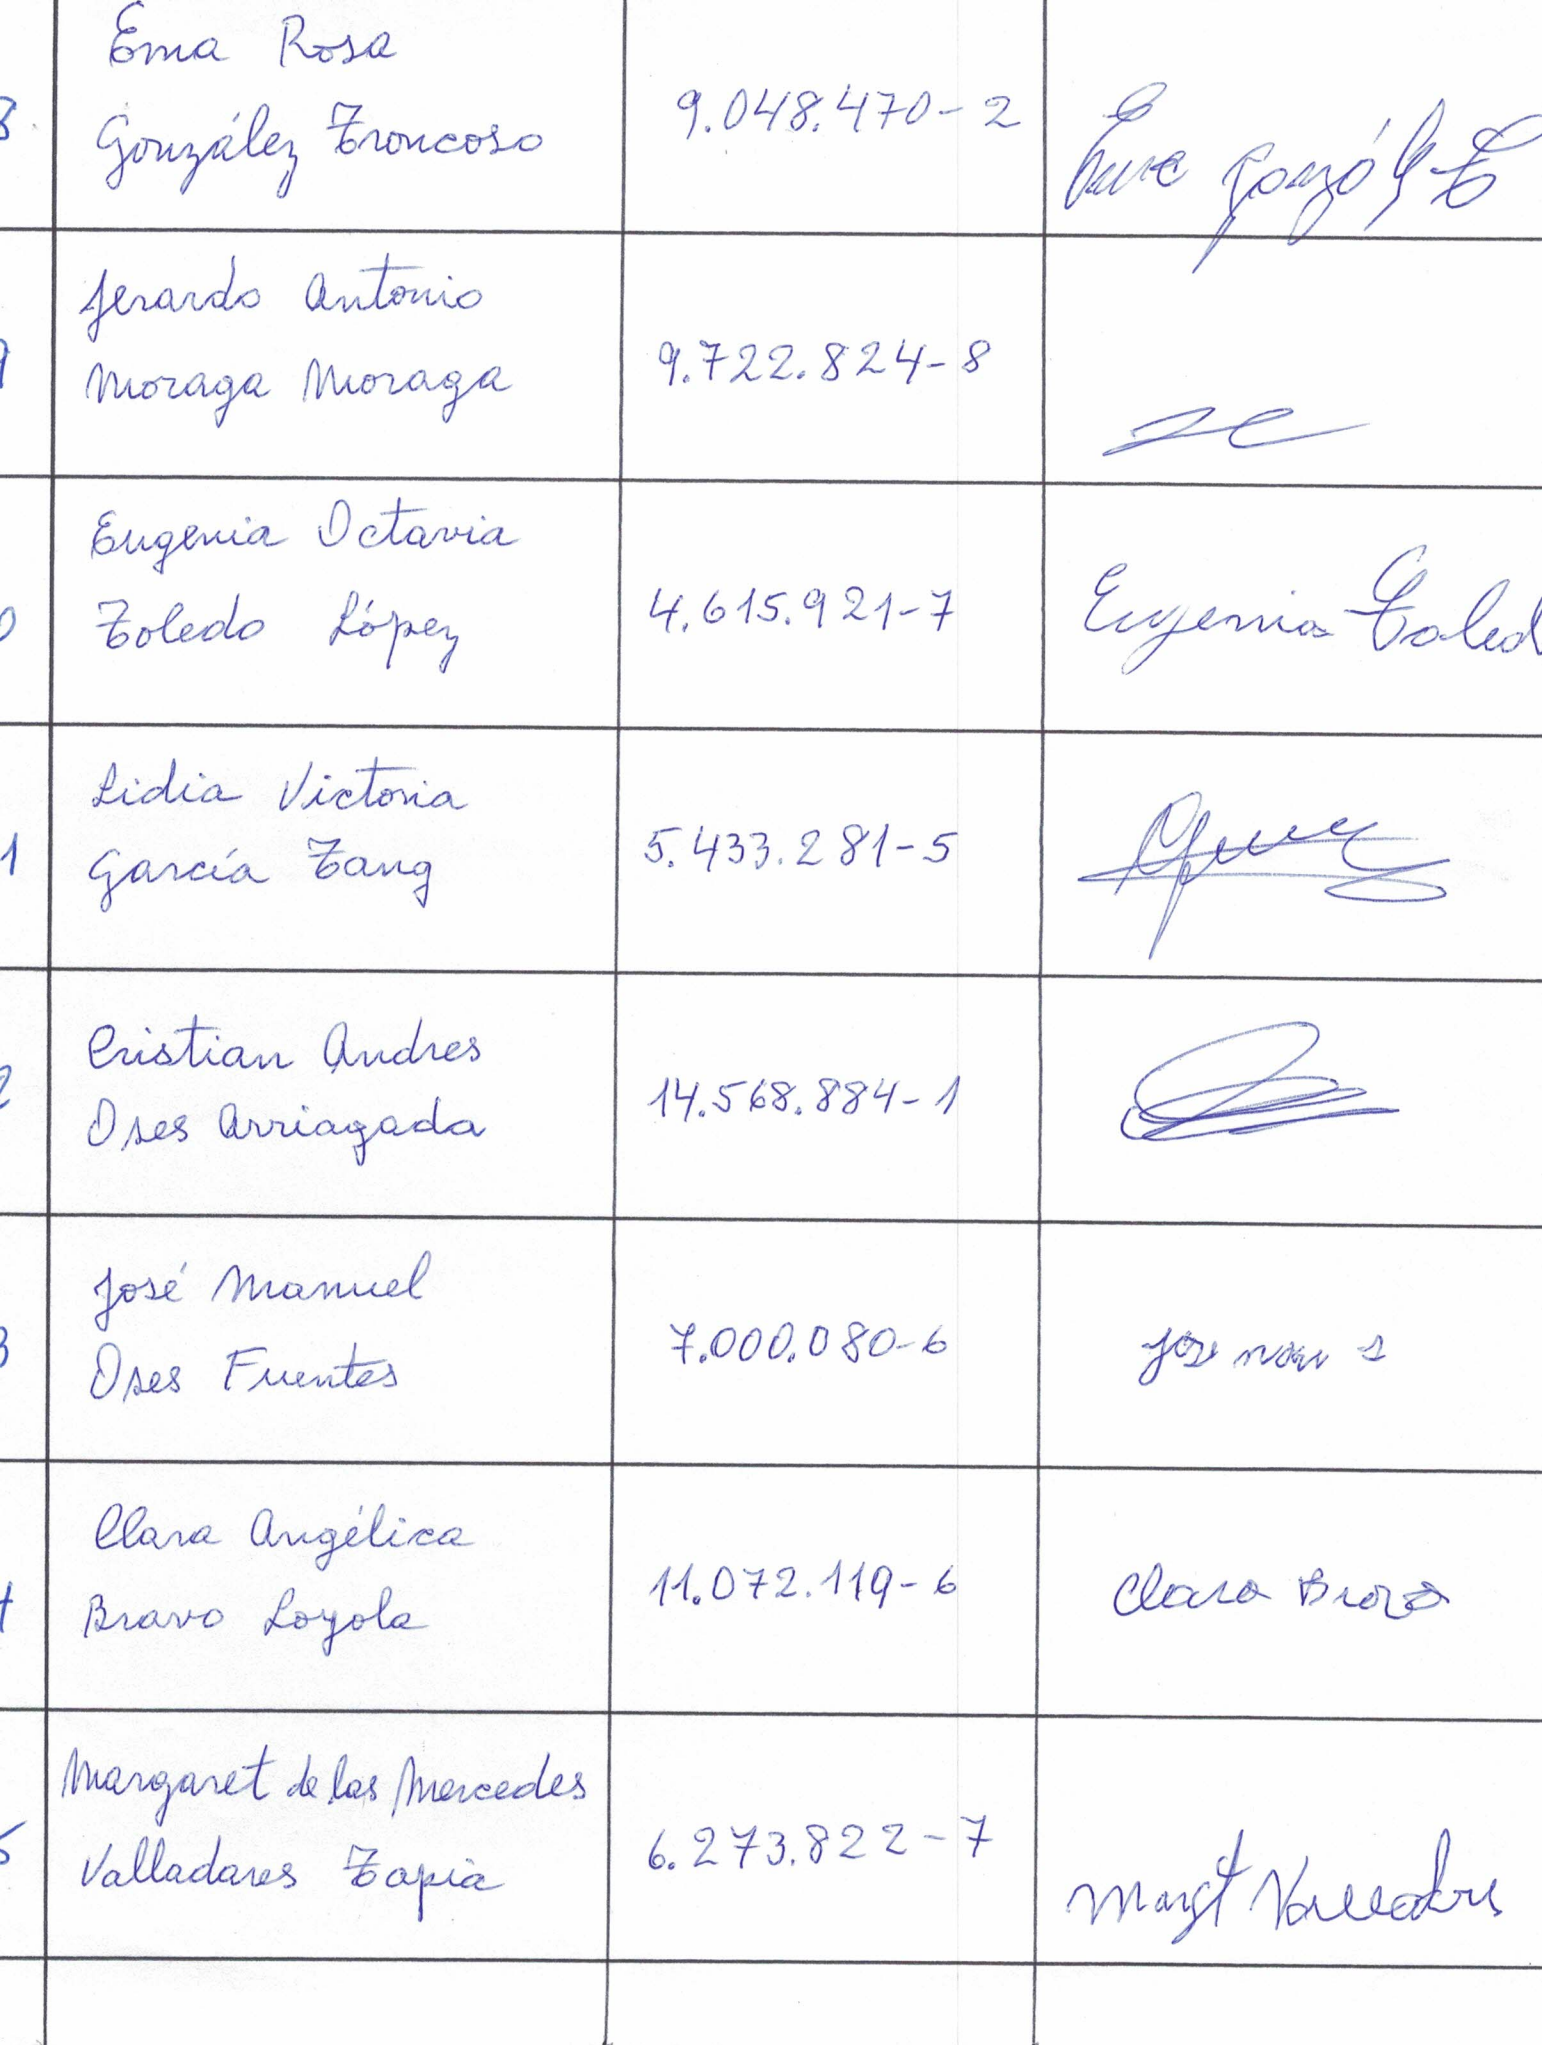 Ema Rosa
González Troncoso
9.048.470-2
Ema Gonzá
Jerardo Antonio
Moraga Moraga
9.722.824-8
Eugenia Octavia
Toledo López
4.615.921-7
Eugenia Toled
Lidia Victoria
García Tang
5.433.281-5
Cristian Andres
Oses Arriagada
14.568.884-1
José Manuel
Oses Fuentes
7.000.080-6
Clara Angélica
Bravo Loyola
11.072.119-6
Clara Bravo
Margaret de las Mercedes
Valladares Tapia
6.273.822-7